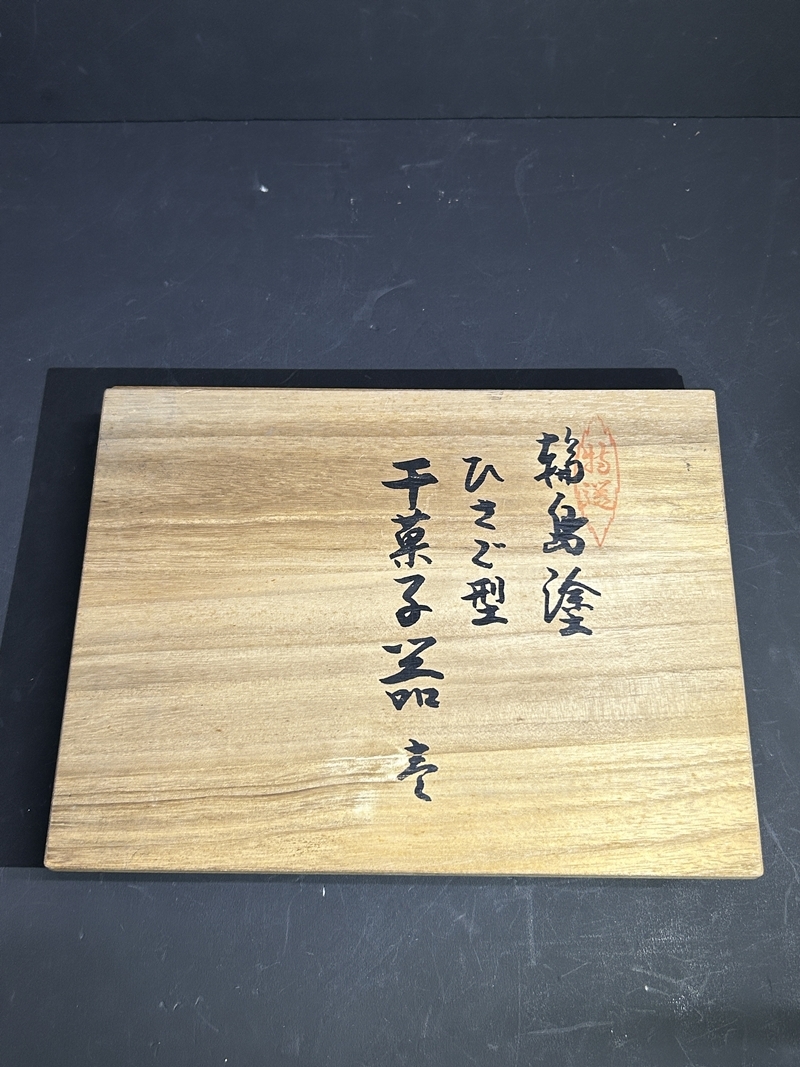 特選
輪島塗
ひさご型
干菓子器 壱